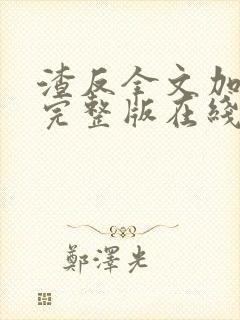 渣反全文加
完整版在綫
鄭澤光